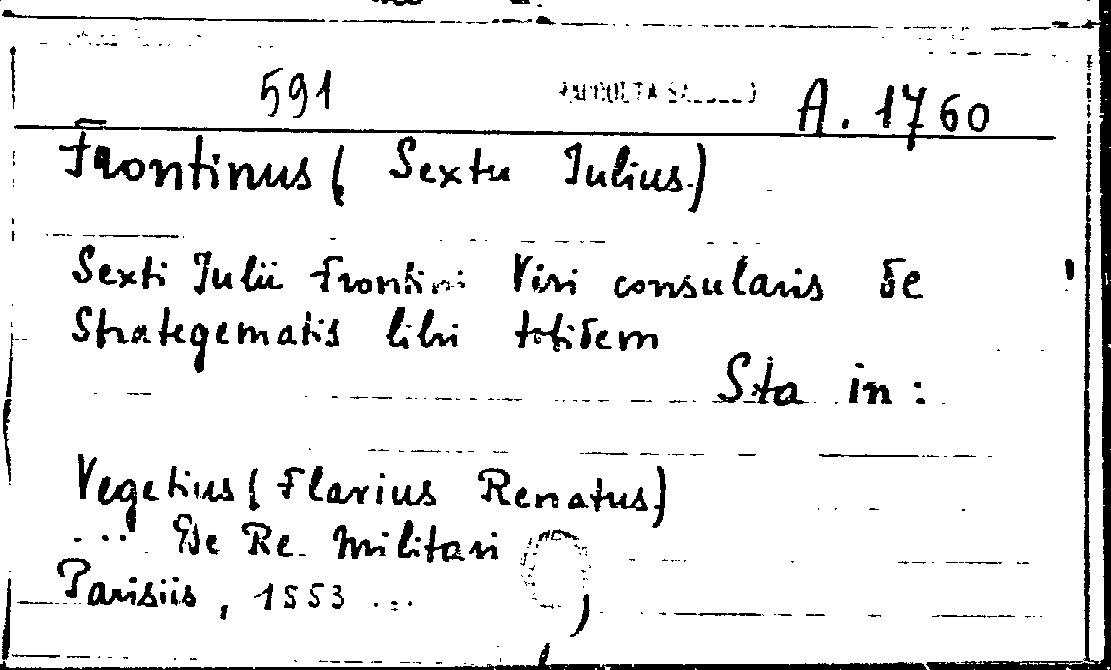 591 RACCOLTA A. 1760
Frontinus ( Sextu Iulius.)
Sexti Iulii Frontini Viri consularis de
Strategematis libri totidem
Sta in :
Vegetius ( Flavius Renatus)
... De Re Militari
Parisiis, 1553 ...